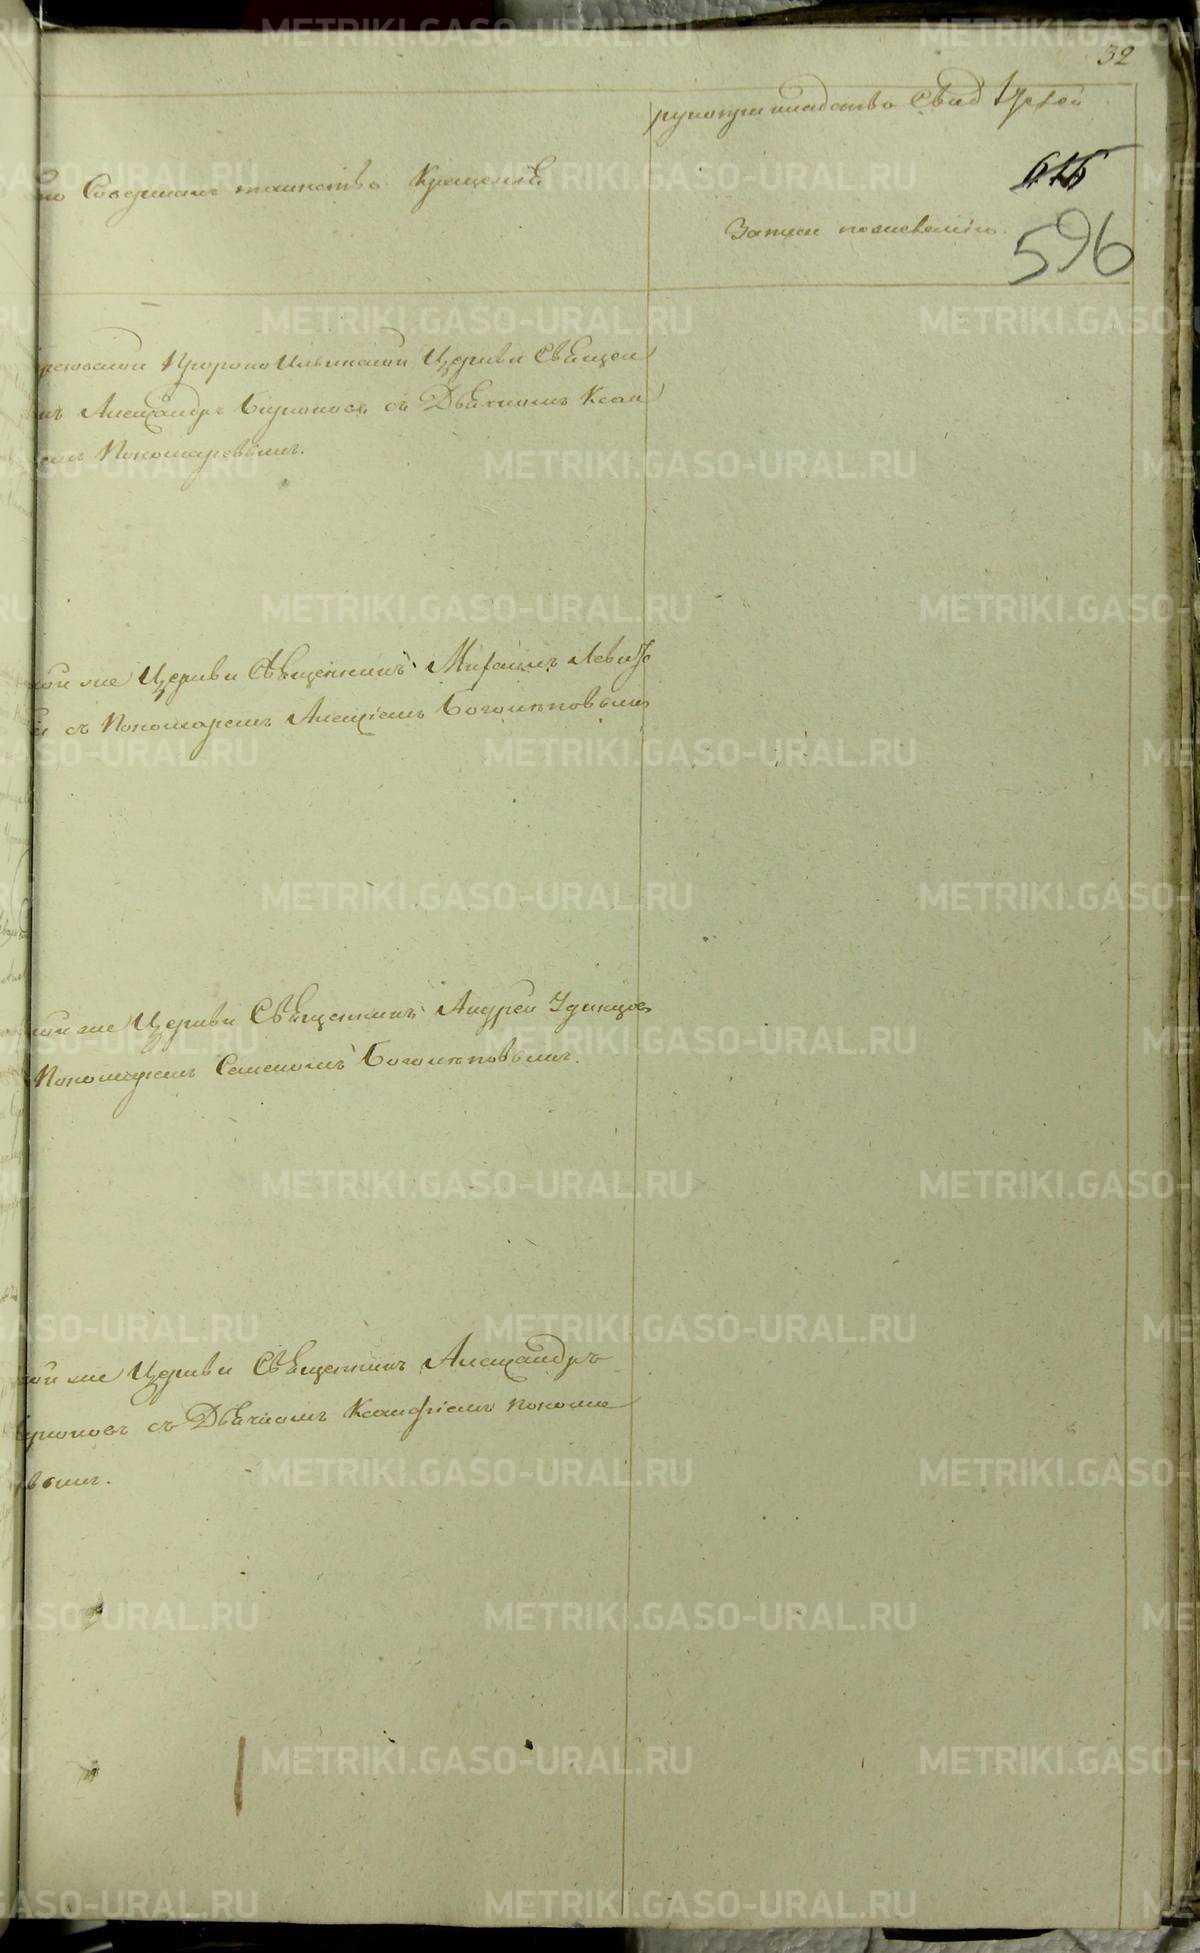 32
рукоприкладство Свидѣтелей
615
Кто Совершалъ таинство Крещенія
Записи по желанію.
596
Пророко Ильинской Церкви Священ
Александръ съ Дьячкомъ Ксан
Пономаревымъ.
же Церкви Священникъ Михаилъ Левиц
съ Пономаремъ Алексіемъ Боголѣповымъ
же Церкви Священникъ Андрей Удинцов
Пономаремъ Семеномъ Боголѣповымъ.
же Церкви Священникъ Александръ
съ Дьячкомъ Ксанфіемъ Понома
вымъ.
METRIKI.GASO-URAL.RU